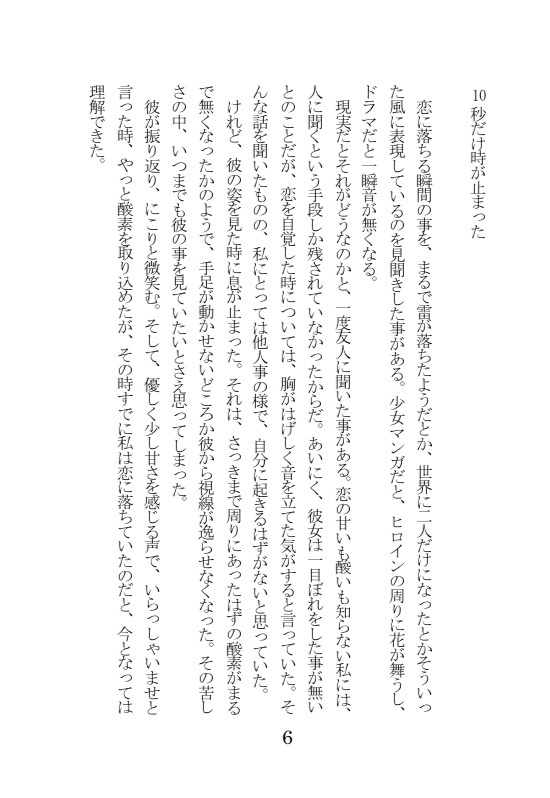 10秒だけ時が止まった
　恋に落ちる瞬間の事を、まるで雷が落ちたようだとか、世界に二人だけになったとかそういっ
た風に表現しているのを見聞きした事がある。少女マンガだと、ヒロインの周りに花が舞うし、
ドラマだと一瞬音が無くなる。
　現実だとそれがどうなのかと、一度友人に聞いた事がある。恋の甘いも酸いも知らない私には、
人に聞くという手段しか残されていなかったからだ。あいにく、彼女は一目ぼれをした事が無い
とのことだが、恋を自覚した時については、胸がはげしく音を立てた気がすると言っていた。そ
んな話を聞いたものの、私にとっては他人事の様で、自分に起きるはずがないと思っていた。
　けれど、彼の姿を見た時に息が止まった。それは、さっきまで周りにあったはずの酸素がまる
で無くなったかのようで、手足が動かせないどころか彼から視線が逸らせなくなった。その苦し
さの中、いつまでも彼の事を見ていたいとさえ思ってしまった。
　彼が振り返り、にこりと微笑む。そして、優しく少し甘さを感じる声で、いらっしゃいませと
言った時、やっと酸素を取り込めたが、その時すでに私は恋に落ちていたのだと、今となっては
理解できた。
6